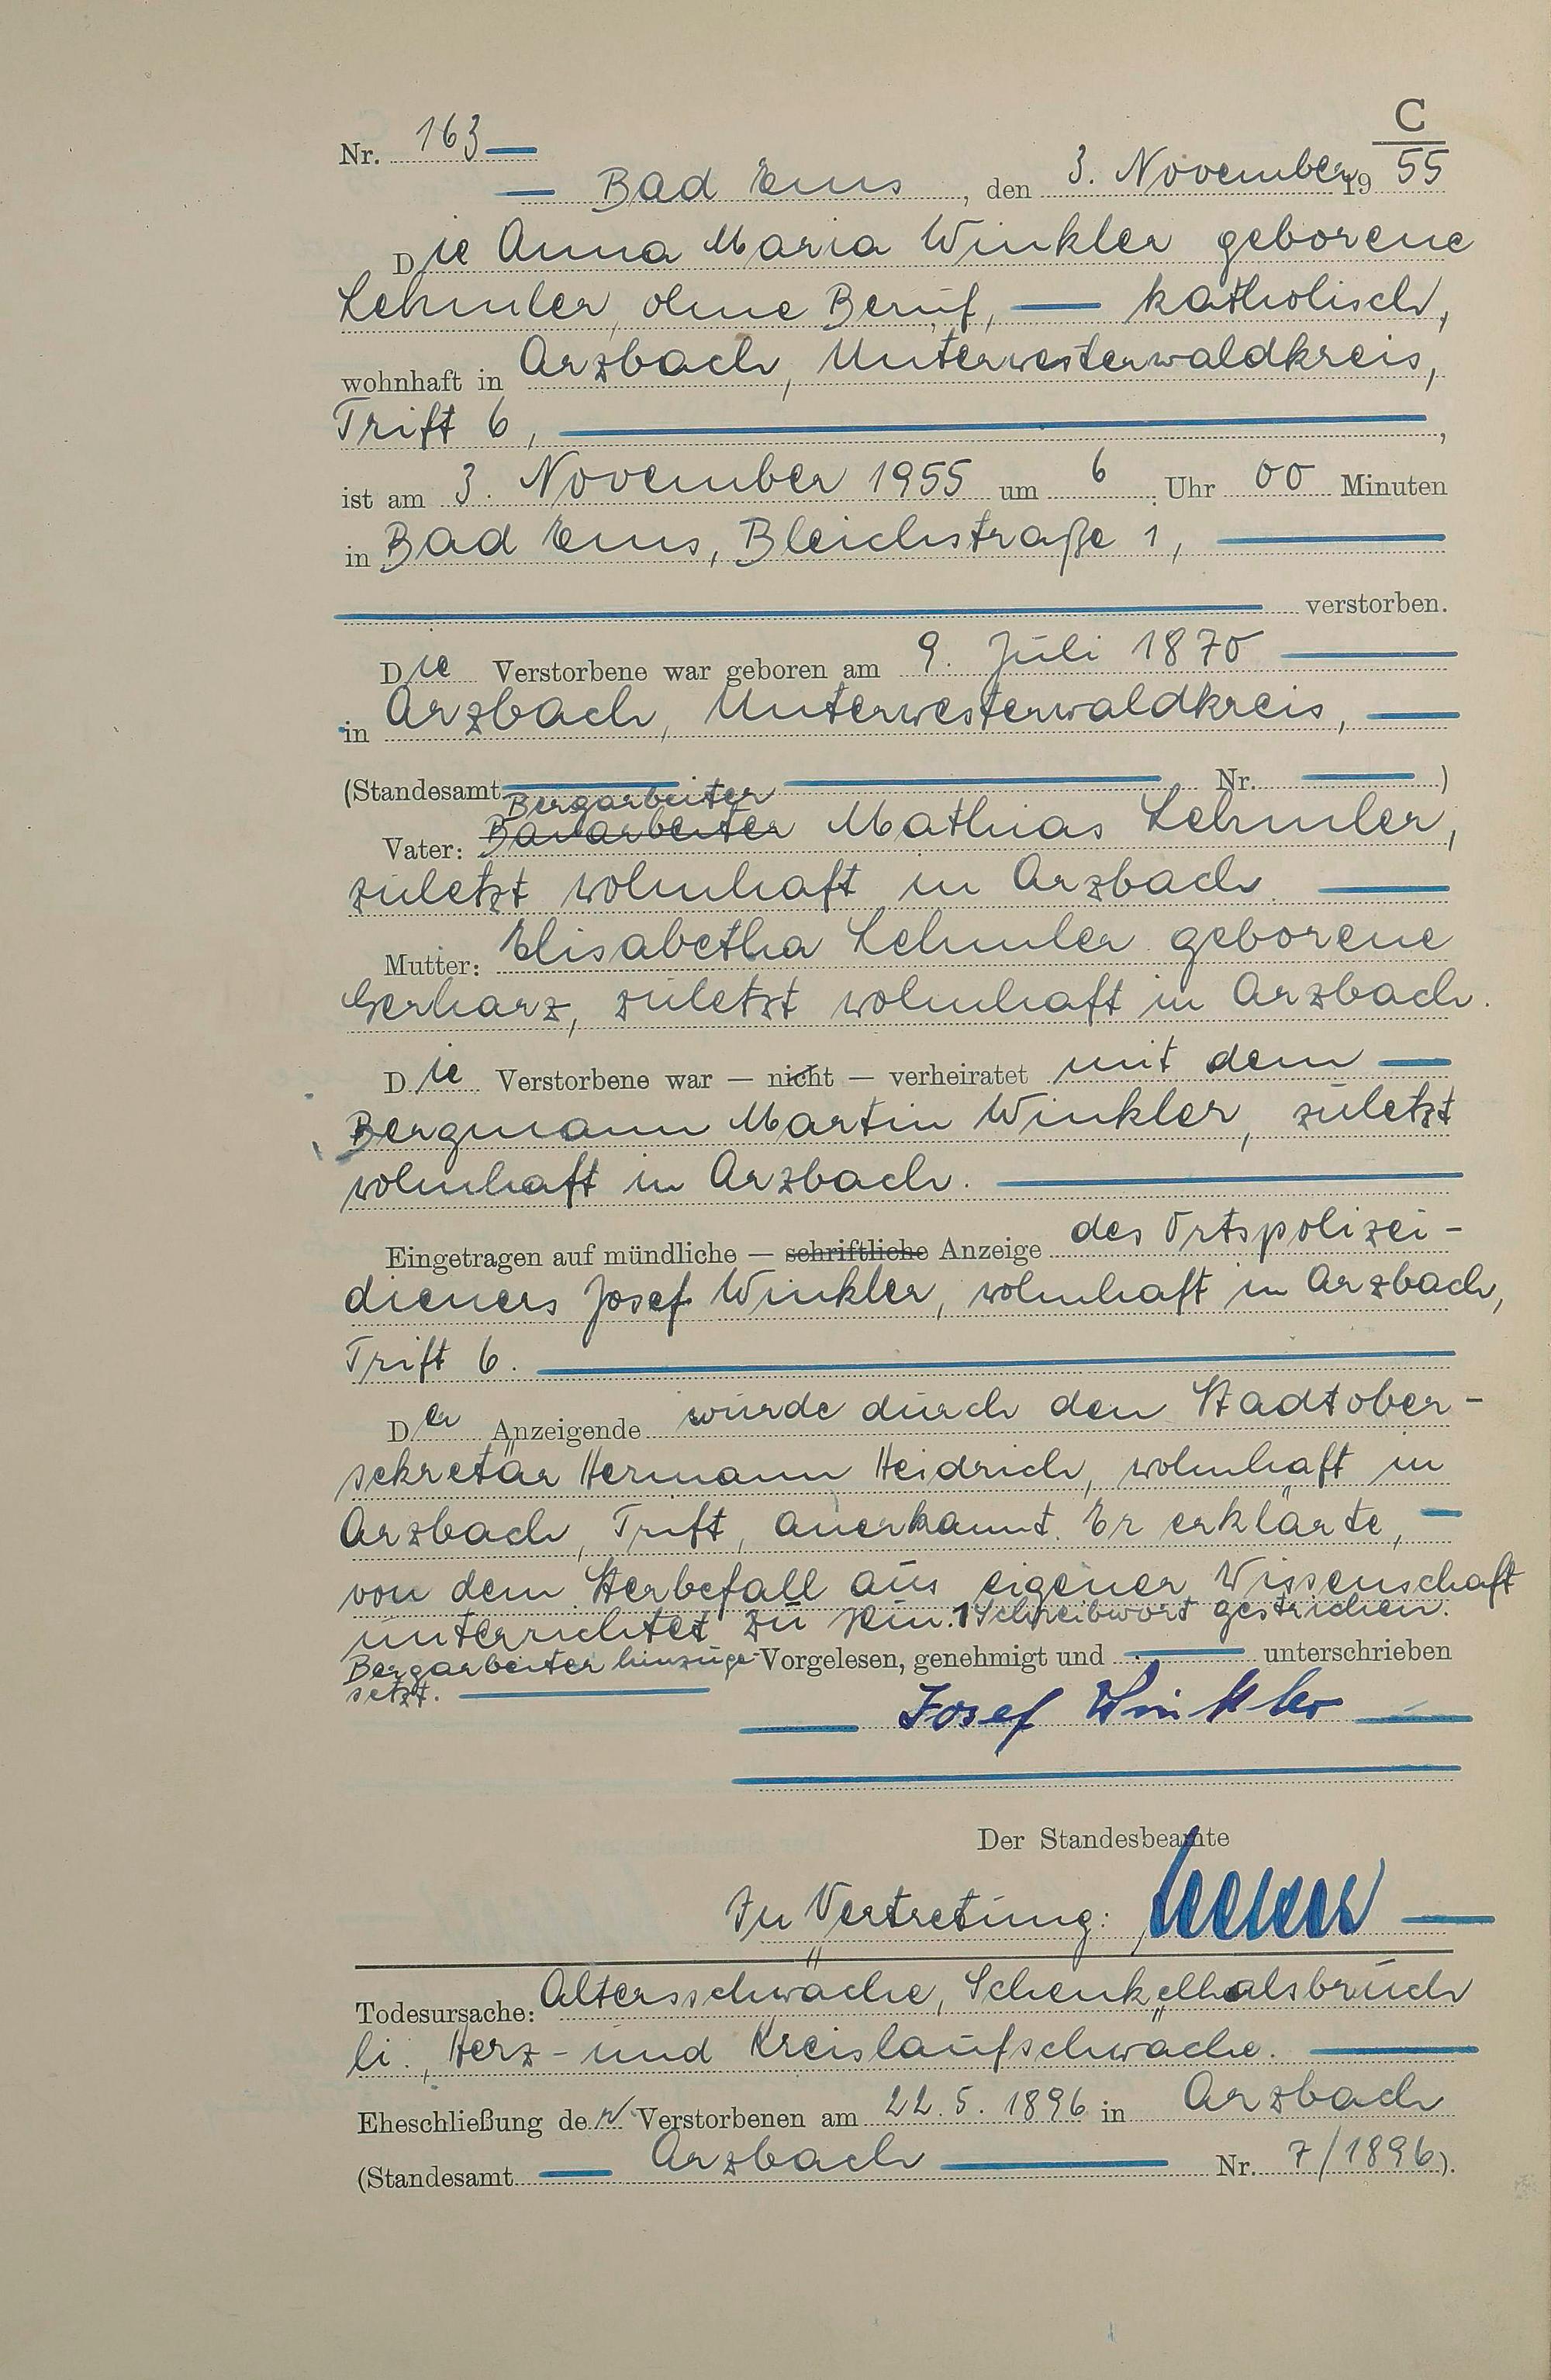 C
Nr. 163
Bad Ems, den 3. November 1955
Die Anna Maria Winkler geborene
Lehmler, ohne Beruf, — katholisch,
wohnhaft in Arzbach, Unterwesterwaldkreis,
Trift 6, ,
ist am 3. November 1955 um 6 Uhr 00 Minuten
in Bad Ems, Bleichstraße 1,
verstorben.
Die Verstorbene war geboren am 9. Juli 1870
in Arzbach, Unterwesterwaldkreis,
(Standesamt Nr. )
Bergarbeiter
Vater: Bauarbeiter Mathias Lehmler,
zuletzt wohnhaft in Arzbach.
Mutter: Elisabetha Lehmler geborene
Gerharz, zuletzt wohnhaft in Arzbach.
Die Verstorbene war — nicht — verheiratet mit dem
Bergmann Martin Winkler, zuletzt
wohnhaft in Arzbach.
Eingetragen auf mündliche — schriftliche Anzeige des Ortspolizei-
dieners Josef Winkler, wohnhaft in Arzbach,
Trift 6.
Der Anzeigende wurde durch den Stadtober-
sekretär Hermann Heidrich, wohnhaft in
Arzbach, Trift, anerkannt. Er erklärte,
von dem Sterbefall aus eigener Wissenschaft
unterrichtet zu sein. 1 Schreibwort gestrichen.
Bergarbeiter hinzuge- Vorgelesen, genehmigt und unterschrieben
setzt.
Josef Winkler
Der Standesbeamte
In Vertretung:
Todesursache: Altersschwäche, Schenkelhalsbruch
li., Herz- und Kreislaufschwäche.
Eheschließung der Verstorbenen am 22. 5. 1896 in Arzbach
(Standesamt Arzbach Nr. 7/1896).